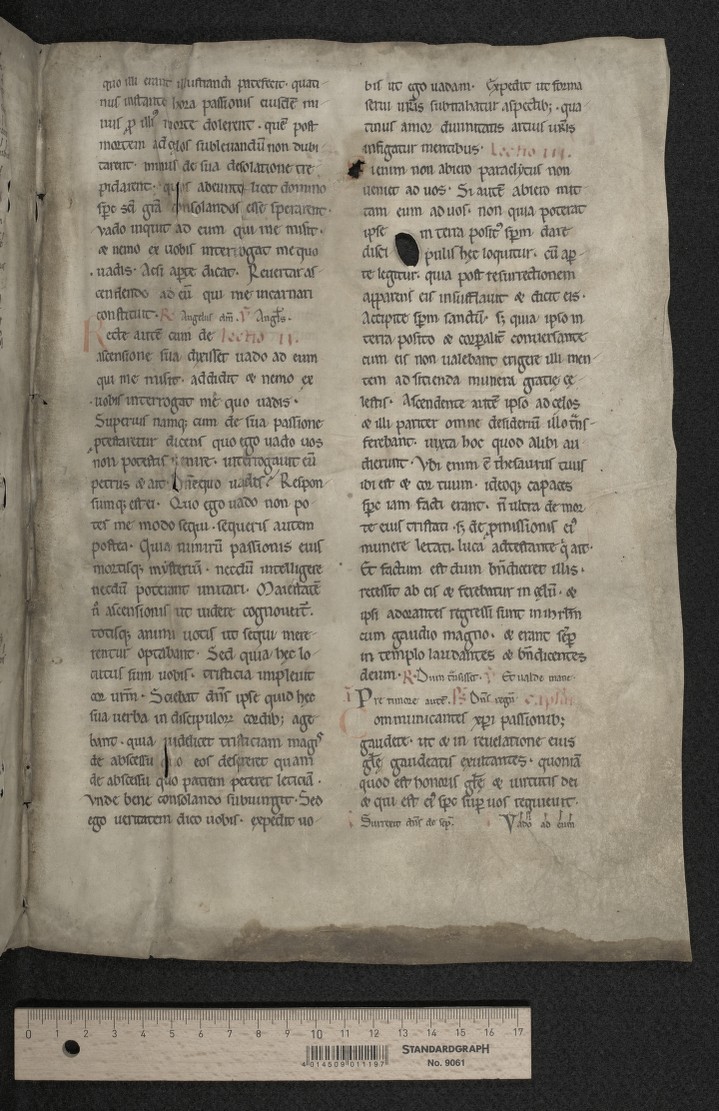 quo illi erant illustrandi patefecit · quati
nus instante hora passionis eiusdē mi
nus ꝑ illiꝰ morte dolerent · quē post
mortem ad cęlos subleuandū non dubi
tarent · minus de sua desolatione tre
pidarent · quos abeunte licet domino
spc̄ sc̄i gr̄a consolandos esse sperarent ·
Vado inquit ad eum qui me misit ·
& nemo ex uobis interrogat me quo
uadis · Acsi aꝑte dicat · Reuertar as
cendendo ad eū qui me incarnari
constituit · R̄ Angelus dn̄i · V̄ Angl̄s ·
Recte autē cum de Lectio II.
ascensione sua dixisset uado ad eum
qui me misit · addidit & nemo ex
uobis interrogat me quo uadis ·
Superius namq; cum de sua passione
p̄testaretur dicens quo ego uado uos
non potestis uenire · interrogauit eū
petrus & ait · Dn̄e quo uadis? Respon
sumq; est ei · Quo ego uado non po
tes me modo sequi · sequeris autem
postea · Quia nimirū passionis eius
mortisq; mysteriū · necdū intelligere
necdū poterant imitari · Maiestatē
ū ascensionis ut uidere cognouerī ·
totisq; animi uotis ut sequi mere
rentur optabant · Sed quia hec lo
cutus sum uobis · tristicia impleuit
cor urm̄ · Sciebat dn̄s ipse quid hec
sua uerba in discipuloꝝ cordib; age
bant · quia uidelicet tristiciam magꝰ
de abscessu quo eos desereret quam
de abscessu quo patrem peteret leticiā ·
Vnde bene consolando subiungit · Sed
ego ueritatem dico uobis · expedit uo
bis ut ego uadam · Expedit ut forma
serui ur̄is subtrahatur aspectib; · qua
tinus amor diuinitatis artius ur̄is
infigatur mentibus · Lectio III.
Si enim non abiero paraclytus non
ueniet ad uos · Si autē abiero mit
tam eum ad uos · non quia poterat
ipse in terra positꝰ spm̄ dare
disci pulis hec loquitur · cū aꝑ
te legitur · quia post resurrectionem
apparens eis insufflauit & dicit eis ·
Accipite spm̄ sanctū · s; quia ipso in
terra posito & corꝑalit̄ conuersante
cum eis non ualebant erigere illi men
tem ad sitienda munera gratie cę
lestis · Ascendente autē ipso ad celos
& illi pariter omne desideriū illo tn̄s
ferebant · iuxta hoc quod alibi au
dierunt · Vbi enim ē thesaurus tuus
ibi est & cor tuum · ideoq; capaces
spc̄ iam facti erant · n̄ ultra de mor
te eius tristati · s; de ꝓmissionis eiꝰ
munere letati · luca adtestante q̇ ait ·
Et factum est dum bn̄diceret illis ·
recessit ab eis & ferebatur in celū · &
ipsi adorantes regressi sunt in ihrlm̄
cum gaudio magno · & erant seꝑ
in templo laudantes & bn̄dicentes
deum · R̄ · Dum t̄nsisset · V̄ Et ualde mane ·
Pre timore autē · Ps̄ Dn̄s regn̄ Capl̄m
Communicantes xp̄i passionib;
gaudete · ut & in reuelatione eius
glē gaudeatis exultantes · quoniā
quod est honoris glē & uirtutis dei
& qui est eiꝰ spc̄ suꝑ uos requieuit ·
Surrexit dn̄s de seꝑ. Vado ad eum
0 1 2 3 4 5 6 7 8 9 10 11 12 13 14 15 16 17
4 014509 011197
STANDARDGRAPH
No. 9061